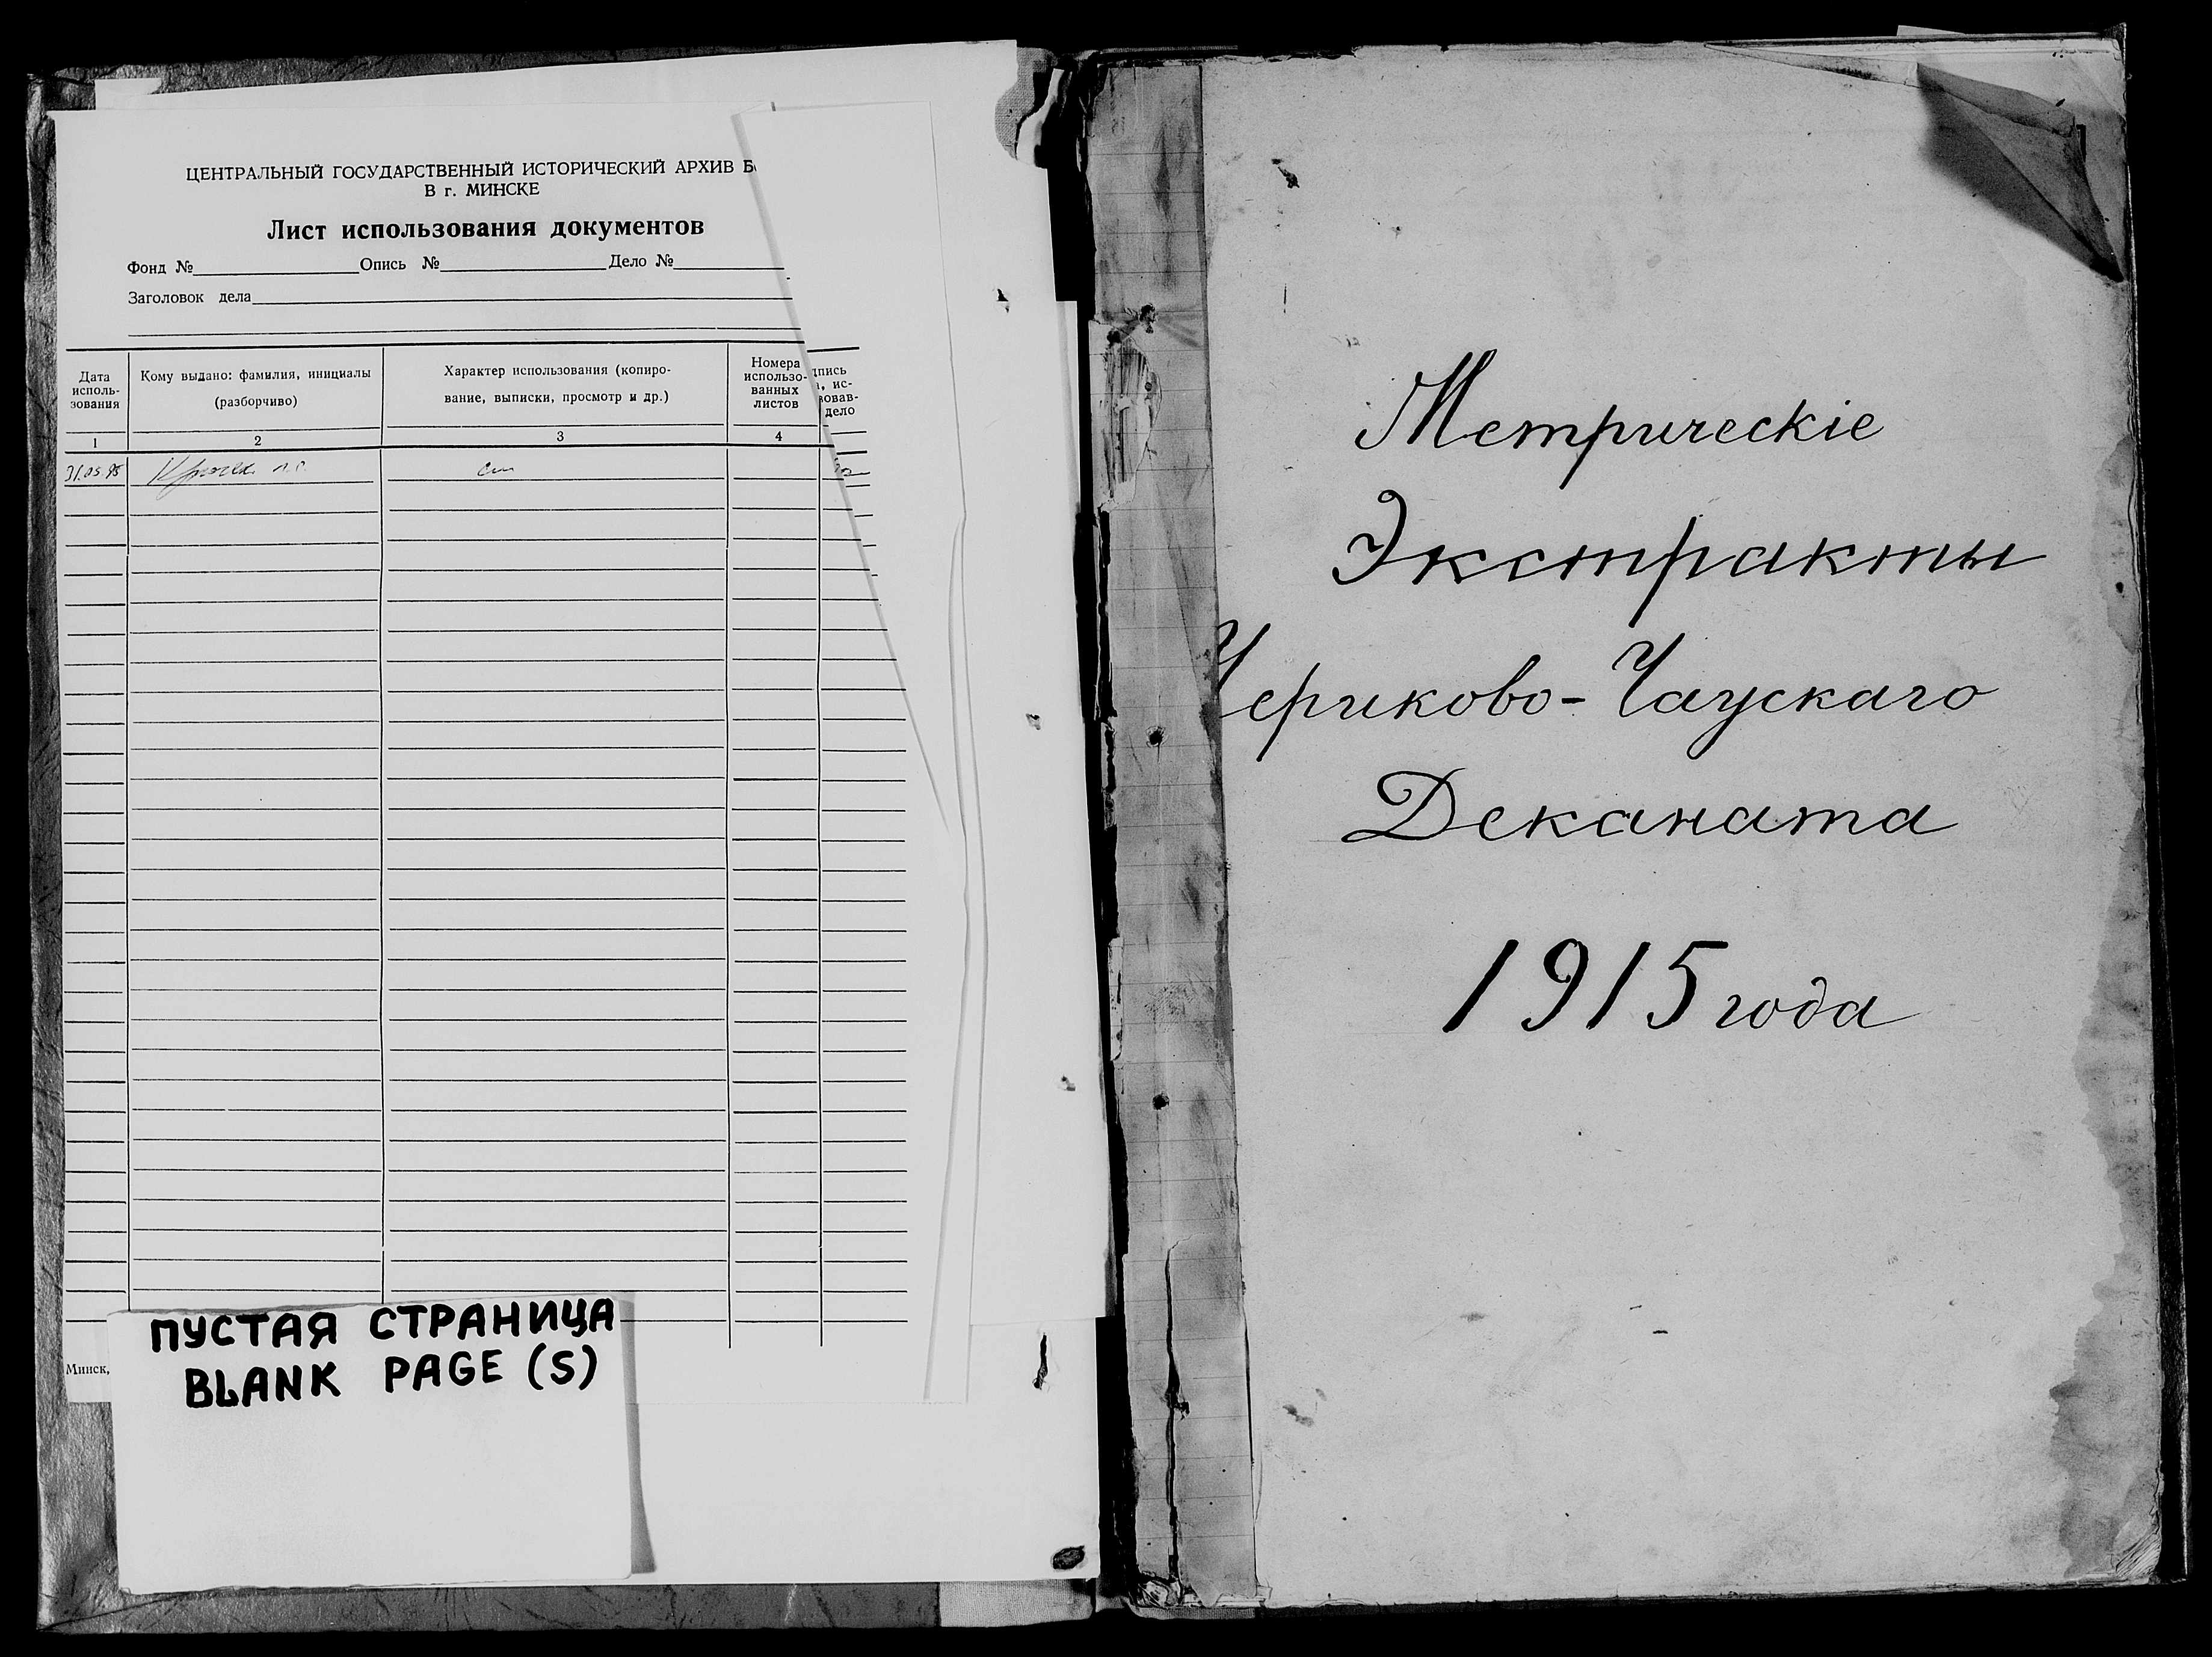 ЦЕНТРАЛЬНЫЙ ГОСУДАРСТВЕННЫЙ ИСТОРИЧЕСКИЙ АРХИВ
В г. МИНСКЕ
Лист использования документов
Фонд № Опись № Дело №
Заголовок дела
Дата исполь-зования
Кому выдано: фамилия, инициалы
(разборчиво)
Характер использования (копиро-
вание, выписки, просмотр и др.)
Номера
использо-
ванных
листов
дпись
ис-
зовав-
дело
1 2 3 4
31.05.95
ПУСТАЯ СТРАНИЦА
BLANK PAGE (S)
Минск,
Метрическіе
Экстракты
Чериково-Чаускаго
Деканата
1915 года